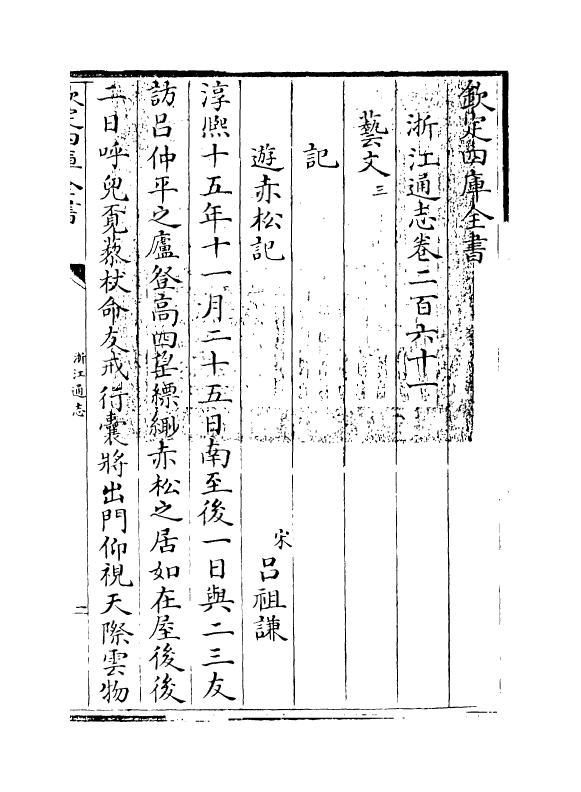 欽定四庫全書
浙江通志卷二百六十一
藝文三
記
遊赤松記　宋呂祖謙
淳熙十五年十一月二十五日南至後一日與二三友
訪呂仲平之廬登高四望縹緲赤松之居如在屋後後
二日呼兒覔藜杖命友戒行囊將出門仰視天際雲物
欽定四庫全書
浙江通志